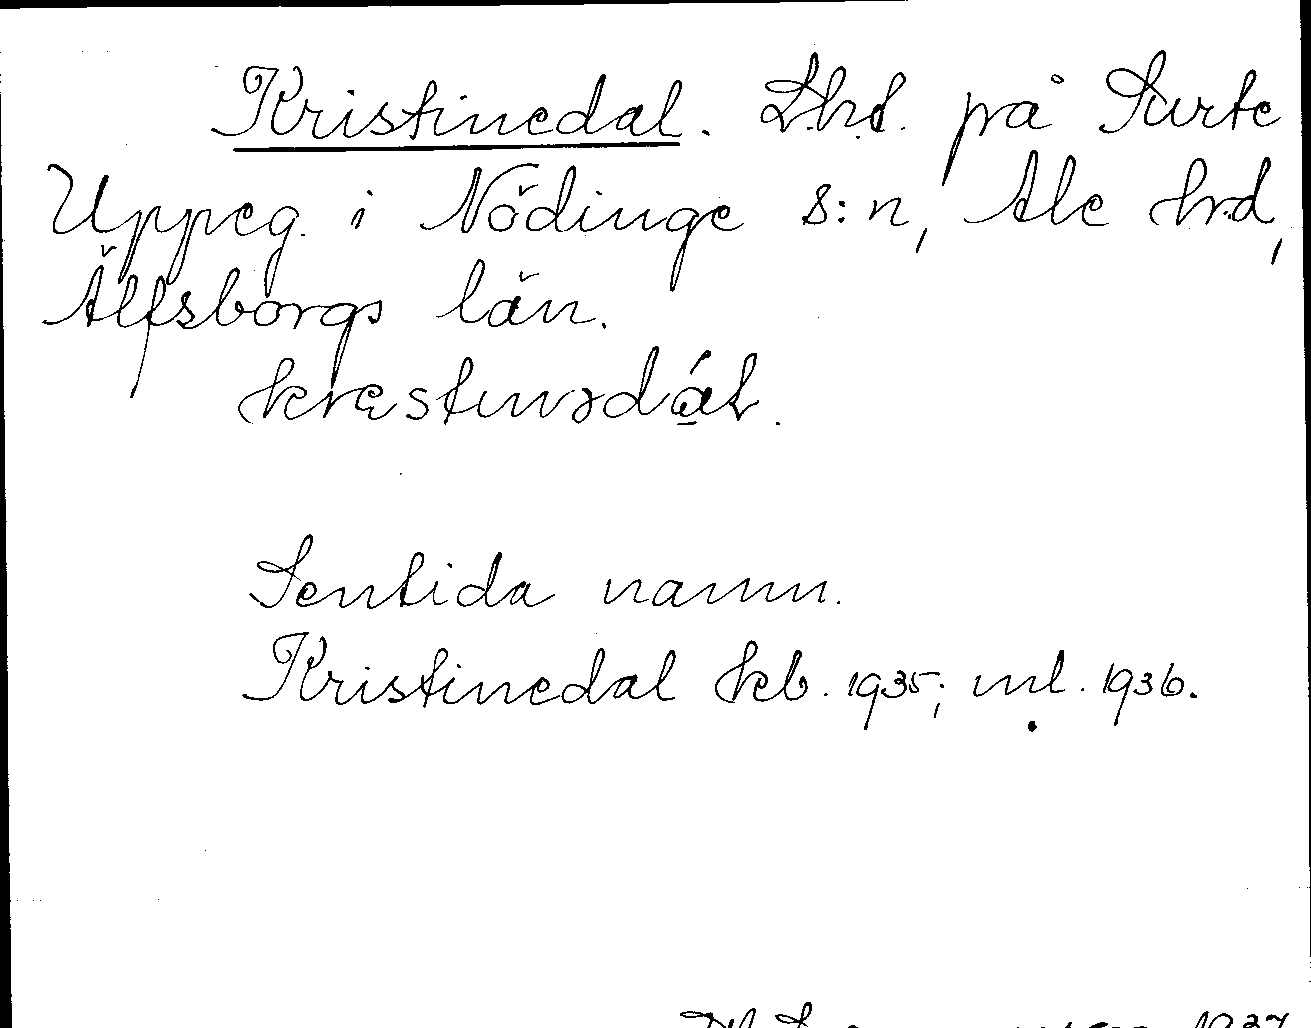 Kristinedal. L.h.t. på Surte
Uppeg. i Nödinge s:n, Ale hrd,
Älfsborgs län.
Sentida namn.
Kristinedal kb. 1935; ml. 1936.
1937